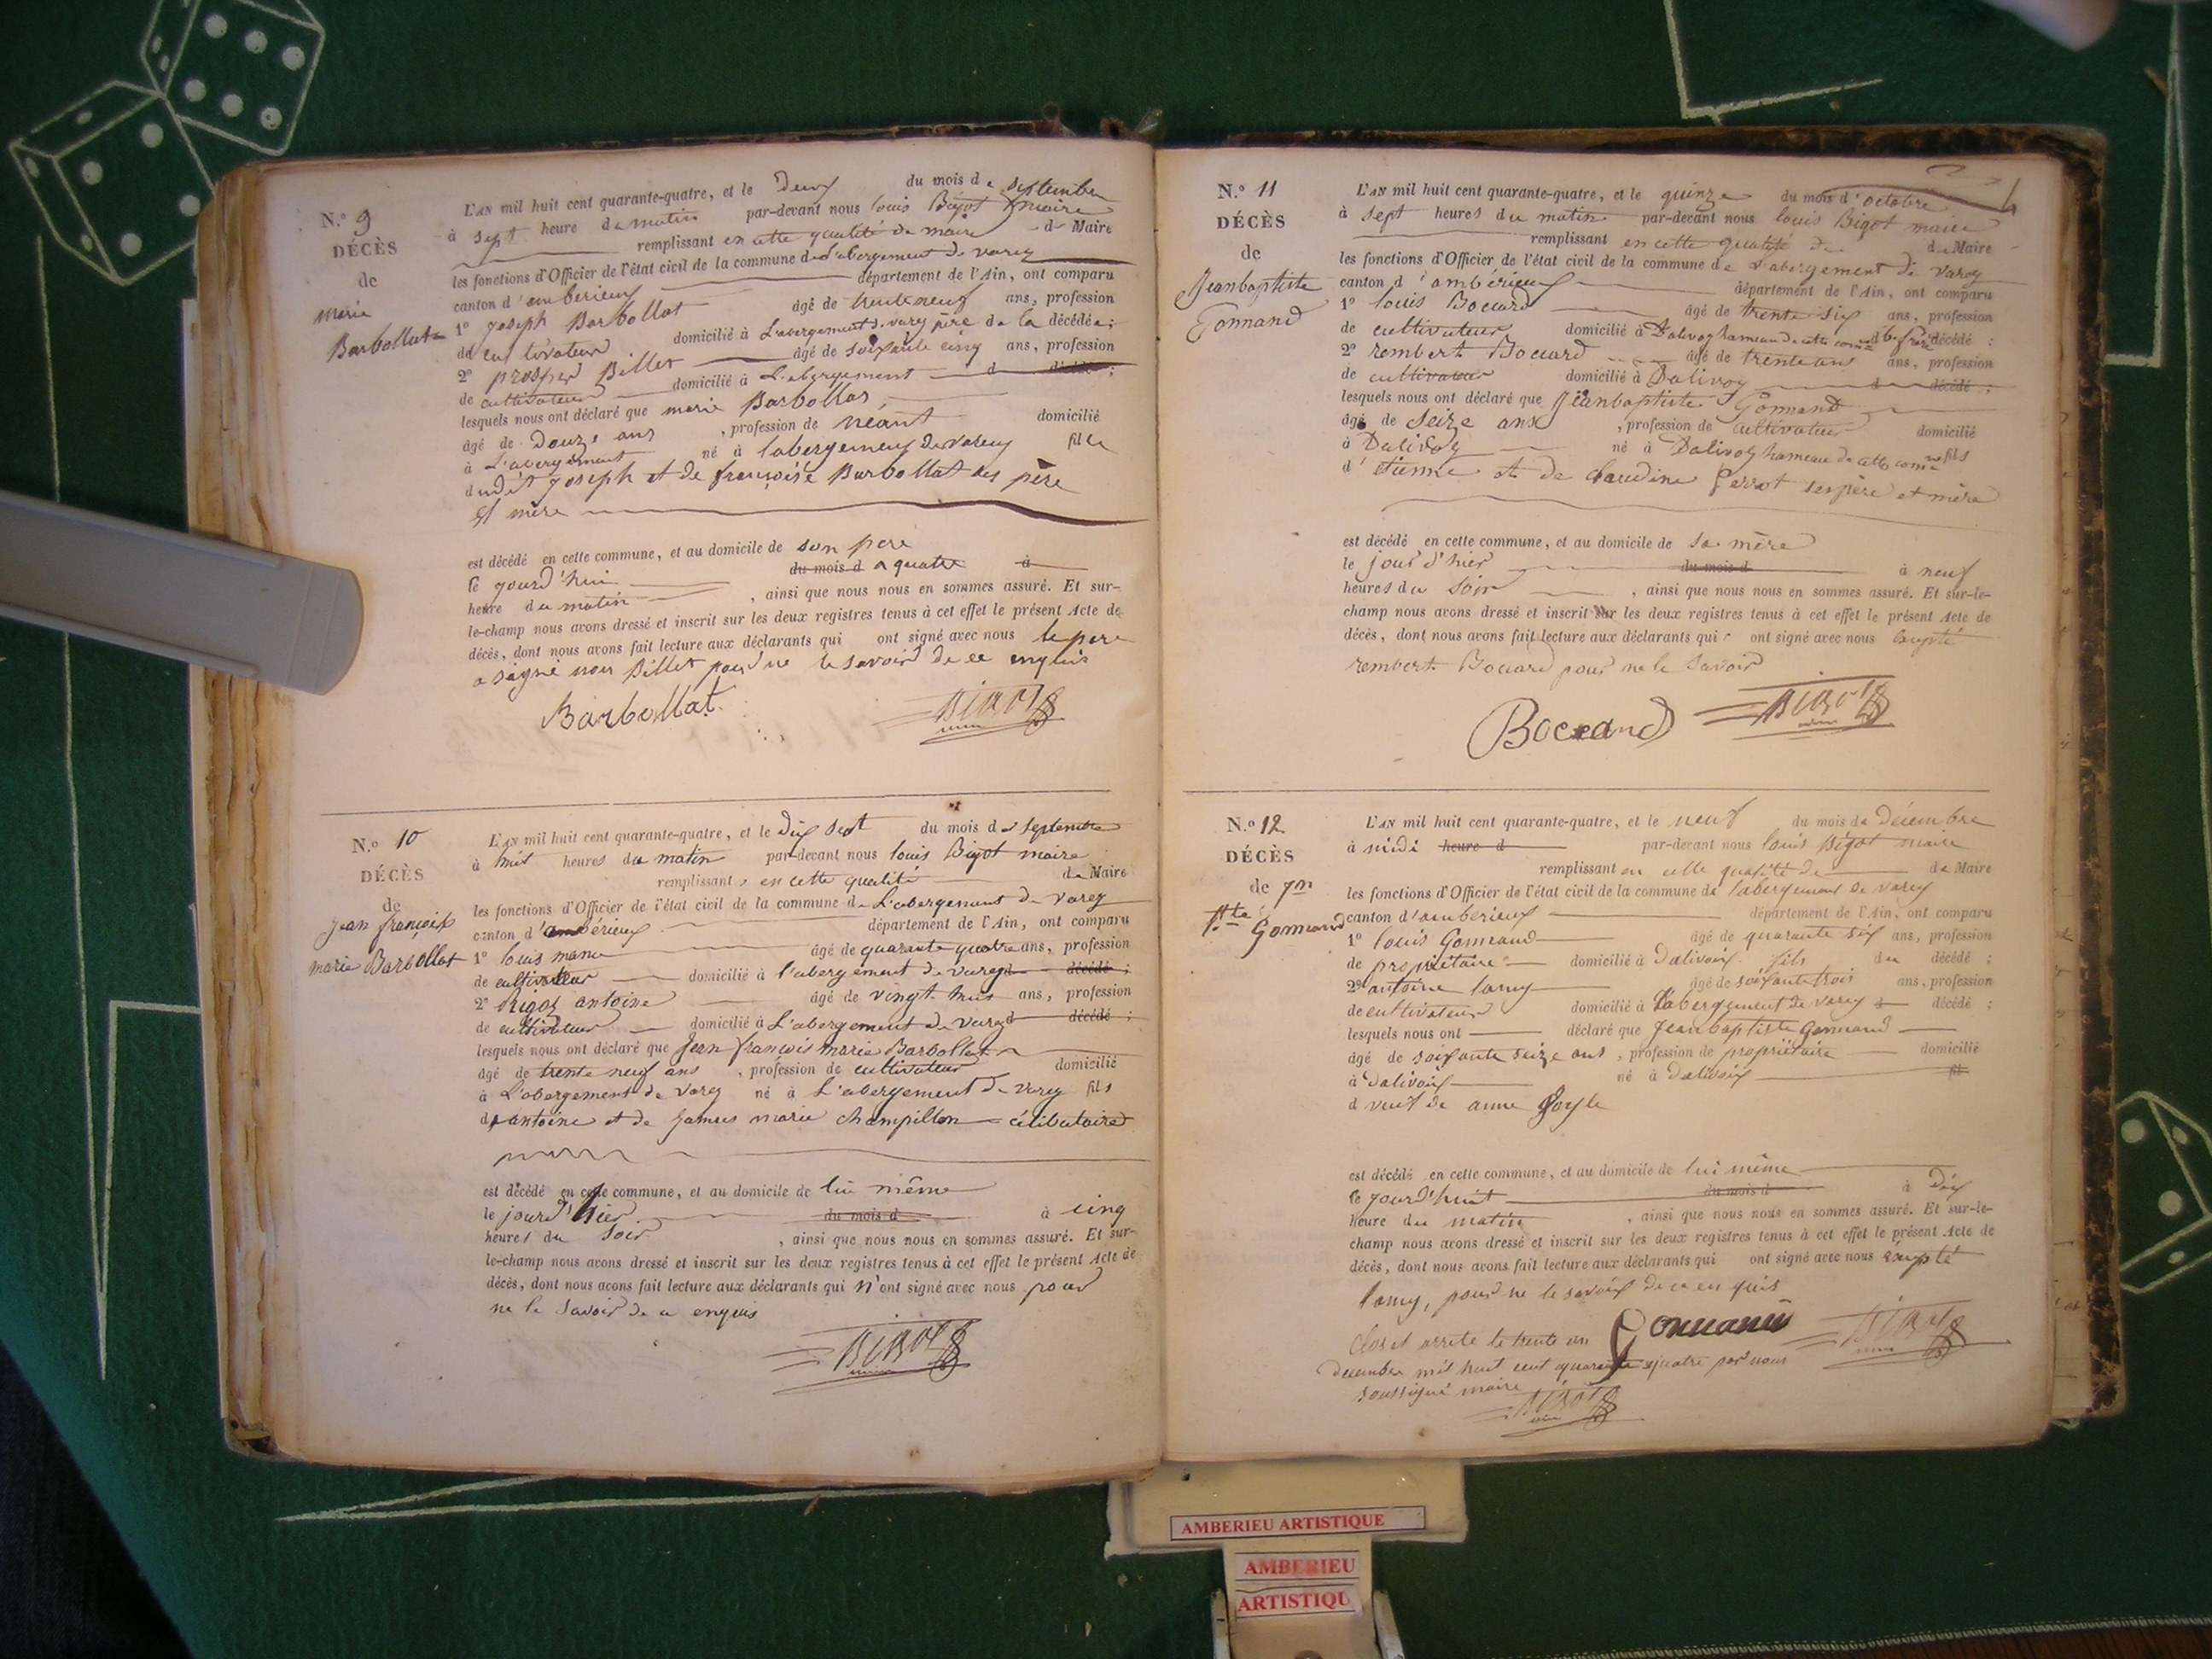 N.° 9
DÉCÈS
de
marie
Barbollat
L'AN mil huit cent quarante-quatre, et le deux du mois de septembre
à sept heure du matin par-devant nous louis Bigot maire
remplissant en cette qualité de maire de Maire
les fonctions d'Officier de l'état civil de la commune de L'abergement de varey
canton d'ambérieux département de l'Ain, ont comparu
1° joseph Barbollat âgé de trente neuf ans, profession
de cultivateur domicilié à L'abergement de varey père de la décédée;
2° prosper Billet âgé de soixante cinq ans, profession
de cultivateur domicilié à L'abergement d décédé;
lesquels nous ont déclaré que marie Barbollat
âgé de douze ans, profession de néant domicilié
à L'abergement né à labergement de varey fille
dudit joseph et de françoise Barbollat ses père
et mère
est décédé en cette commune, et au domicile de son pere
le jourd'hui du mois d a quatre à
heure du matin, ainsi que nous nous en sommes assuré. Et sur-
le-champ nous avons dressé et inscrit sur les deux registres tenus à cet effet le présent Acte de
décès, dont nous avons fait lecture aux déclarants qui ont signé avec nous le pere
a signé non Billet pour ne le savoir de ce enquis
Barbollat BIGOT
N.° 10
DÉCÈS
de
jean françois
marie Barbollat
L'AN mil huit cent quarante-quatre, et le dix sept du mois de septembre
à huit heures du matin par-devant nous louis Bigot maire
remplissant en cette qualité de Maire
les fonctions d'Officier de l'état civil de la commune de L'abergement de varey
canton d'ambérieux département de l'Ain, ont comparu
1° louis âgé de quarante quatre ans, profession
de cultivateur domicilié à l'abergement de varey d décédé;
2° antoine âgé de vingt huit ans, profession
de cultivateur domicilié à L'abergement de varey d décédé;
lesquels nous ont déclaré que jean françois marie Barbollat
âgé de trente neuf ans, profession de cultivateur domicilié
à L'abergement de varey né à L'abergement de varey fils
d'antoine et de marie champillon célibataire
est décédé en cette commune, et au domicile de lui même
le jour d'hier du mois d à cinq
heures du soir, ainsi que nous nous en sommes assuré. Et sur-
le-champ nous avons dressé et inscrit sur les deux registres tenus à cet effet le présent Acte de
décès, dont nous avons fait lecture aux déclarants qui n'ont signé avec nous pour
ne le savoir de ce enquis
BIGOT
N.° 11
DÉCÈS
de
Jeanbaptiste
Gonnand
L'AN mil huit cent quarante-quatre, et le quinze du mois d'octobre
à sept heures du matin par-devant nous louis Bigot maire
remplissant en cette qualité de de Maire
les fonctions d'Officier de l'état civil de la commune de L'abergement de varey
canton d'ambérieux département de l'Ain, ont comparu
1° louis Bocard âgé de trente six ans, profession
de cultivateur domicilié à Dalivoy hameau de cette décédé;
2° rembert Bocard âgé de trente ans ans, profession
de cultivateur domicilié à Dalivoy d décédé;
lesquels nous ont déclaré que Jeanbaptiste Gonnand
âgé de seize ans, profession de cultivateur domicilié
à Dalivoy né à Dalivoy hameau de cette fils
d'etienne et de claudine perrot ses père et mère
est décédé en cette commune, et au domicile de sa mère
le jour d'hier du mois d à neuf
heures du soir, ainsi que nous nous en sommes assuré. Et sur-le-
champ nous avons dressé et inscrit sur les deux registres tenus à cet effet le présent Acte de
décès, dont nous avons fait lecture aux déclarants qui ont signé avec nous
rembert Bocard pour ne le savoir
BIGOT
N.° 12
DÉCÈS
de
Gonnand
L'AN mil huit cent quarante-quatre, et le neuf du mois de décembre
à midi heure d par-devant nous louis Bigot maire
remplissant en cette qualité de de Maire
les fonctions d'Officier de l'état civil de la commune de labergement de varey
canton d'ambérieux département de l'Ain, ont comparu
1° louis Gonnand âgé de quarante six ans, profession
de propriétaire domicilié à Dalivoix fils du décédé;
2° antoine lamy âgé de soixante trois ans, profession
de cultivateur domicilié à L'abergement de varey d décédé;
lesquels nous ont déclaré que Jean baptiste Gonnand
âgé de soixante seize ans, profession de propriétaire domicilié
à Dalivoix né à Dalivoix fil
d veuf de anne
est décédé en cette commune, et au domicile de lui même
le jourd'huit du mois d à dix
heure du matin, ainsi que nous nous en sommes assuré. Et sur-le-
champ nous avons dressé et inscrit sur les deux registres tenus à cet effet le présent Acte de
décès, dont nous avons fait lecture aux déclarants qui ont signé avec nous
lamy, pour ne le savoir de ce enquis
Gonnand BIGOT
Clos et arrêté le trente un
decembre mil huit cent quarante quatre par nous
soussigné maire
BIGOT
AMBERIEU ARTISTIQUE
AMBERIEU
ARTISTIQU